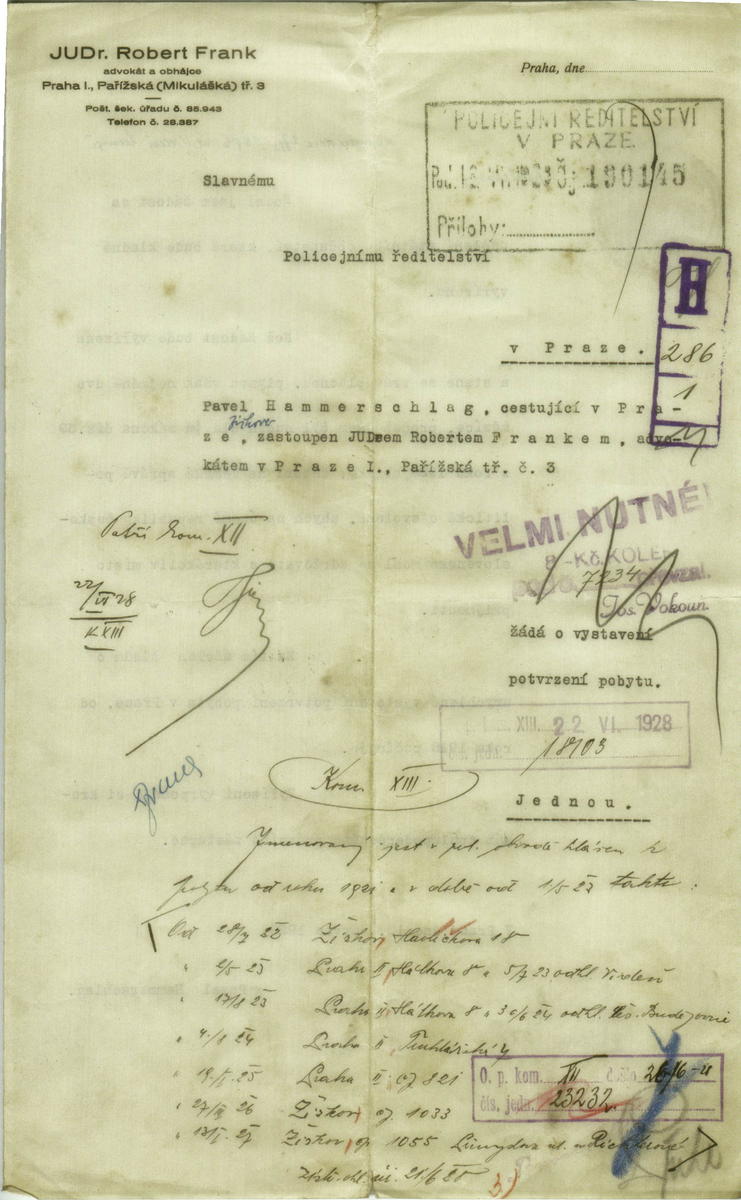 JUDr. Robert Frank
advokát a obhájce
Praha I., Pařížská (Mikulášká) tř. 3
Pošt. šek. úřadu č. 85.943
Telefon č. 28.387
Praha, dne
POLICEJNÍ ŘEDITELSTVÍ
V PRAZE
Čj 190145
Přílohy:
Slavnému
Policejnímu ředitelství
v Praze.
H
286
1
Pavel Hammerschlag, cestující v Pra-
Žižkově
ze, zastoupen JUDrem Robertem Frankem, advo-
kátem v Praze I., Pařížská tř. č. 3
VELMI NUTNÉ!
8-Kč. KOLEK
7234
Jos. Vokoun.
Patří kom. XII
22/VI 28
K XIII
žádá o vystavení
potvrzení pobytu.
XIII. 22 VI. 1928
18103
Kom. XIII.
Jednou.
Jmenovaný jest v pol. obvodě hlášen k
pobytu od roku 1921 a v době od 1/5 23 takto:
Od 28/7 22 Žižkov, Havlíčkova 18
" 2/5 23 Praha II, Hálkova 8 a 5/7 23 odhl. Vídeň
" 17/8 23 Praha II, Hálkova 8 a 30/6 24 odhl. Čes. Budějovice
24 Praha II Truhlářská
25 Praha II. čj 821
" 27/ 26 Žižkov čp 1033
27 Žižkov, čp 1055
O. p. kom. XIII
čís. jedn. 23232
21/6 28